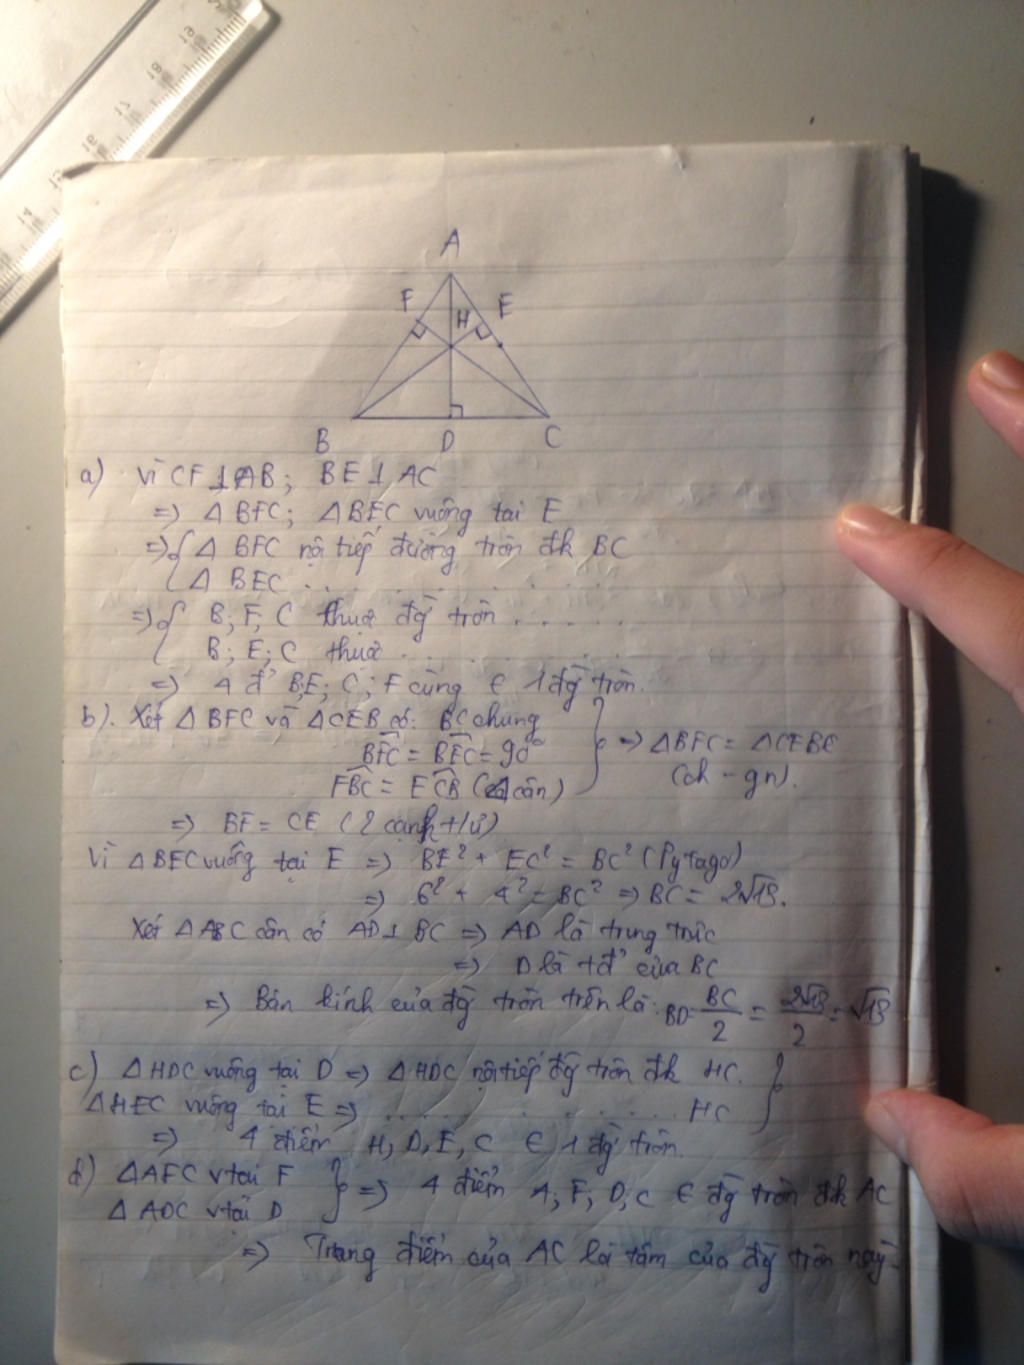 14 15 16 17 18 19
A
F H E
B D C
a) Vì CF ⊥ AB; BE ⊥ AC
=> Δ BFC; Δ BEC vuông tại E
=> { Δ BFC nội tiếp đường tròn đk BC
Δ BEC . . . . . . . . . .
=> { B; F; C thuộc đg tròn . . . . .
B; E; C thuộc . . . . . . . .
=> 4 đ' B;E; C; F cùng ∈ 1 đg tròn.
b). Xét Δ BFC và Δ CEB có: BC chung
BFC = BEC = 90° } => Δ BFC = Δ CEB
FBC = ECB (Δ cân) (ch - gn).
=> BF = CE (2 cạnh t/ứ)
Vì Δ BEC vuông tại E => BE² + EC² = BC² (Pytago)
=> 6² + 4² = BC² => BC = 2√13.
Xét Δ ABC cân có AD ⊥ BC => AD là trung trực
=> D là tđ' của BC
=> Bán kính của đg tròn trên là: BD = BC/2 = 2√13/2 = √13
c) Δ HDC vuông tại D => Δ HDC nội tiếp đg tròn đk HC. }
Δ HEC vuông tại E => . . . . . . . . . . HC
=> 4 điểm H, D, E, C ∈ 1 đg tròn.
d) Δ AFC v tại F } => 4 điểm A; F; D; C ∈ đg tròn đk AC
Δ ADC v tại D
=> Trung điểm của AC là tâm của đg tròn này.